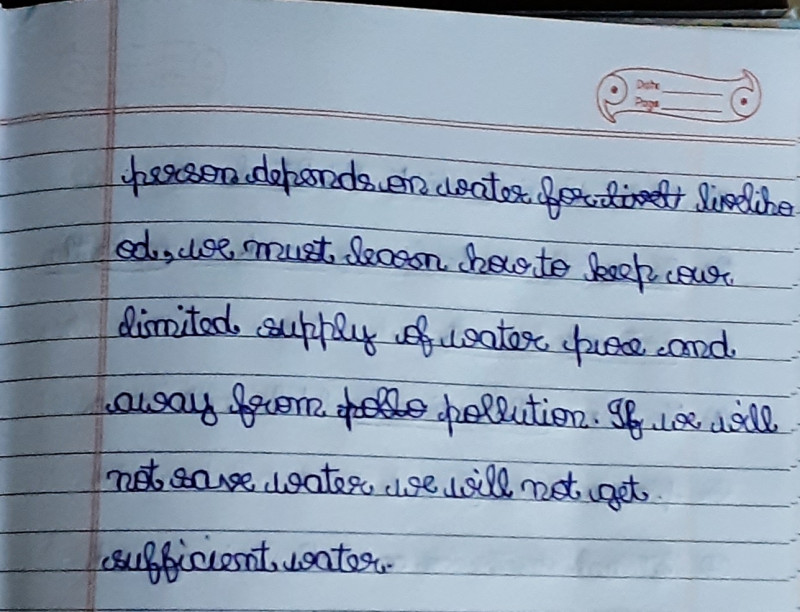 Date
Page
person depends on water for liveliho
od, we must learn how to keep our
limited supply of water pure and
away from pollution. If we will
not save water we will not get
sufficient water.